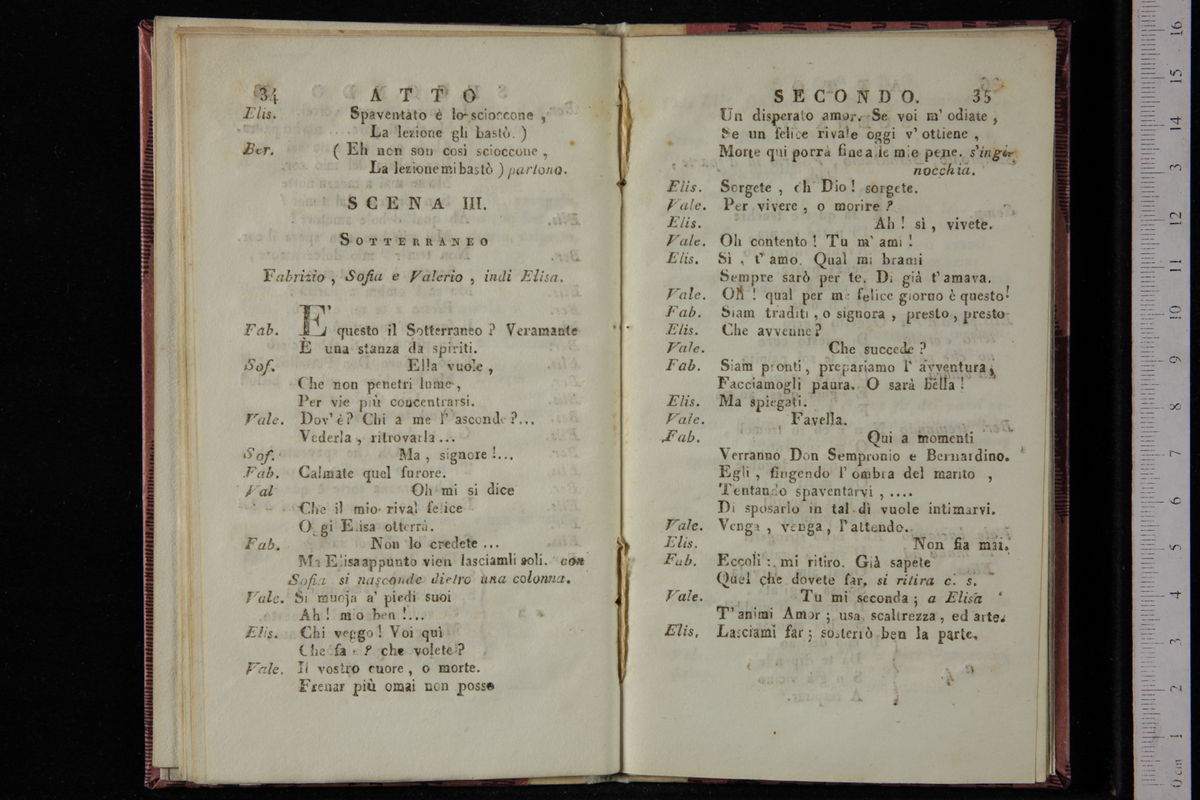 34 ATTO
Elis. Spaventato è lo scioccone,
La lezione gli bastò. )
Ber. ( Eh non son così scioccone,
La lezione mi bastò ) partono.
SCENA III.
SOTTERRANEO
Fabrizio, Sofia e Valerio, indi Elisa.
Fab. E' questo il Sotterraneo? Veramante
È una stanza da spiriti.
Sof. Ella vuole,
Che non penetri lume,
Per vie più concentrarsi.
Vale. Dov'è? Chi a me l'asconde?...
Vederla, ritrovarla...
Sof. Ma, signore!...
Fab. Calmate quel furore.
Val Oh mi si dice
Che il mio rival felice
Oggi Elisa otterrà.
Fab. Non lo credete...
Ma Elisa appunto vien lasciamli soli. con
Sofia si nasconde dietro una colonna.
Vale. Si muoja a' piedi suoi
Ah! mio ben!...
Elis. Chi veggo! Voi quì
Che fa ? che volete?
Vale. Il vostro cuore, o morte.
Frenar più omai non posso
SECONDO. 35
Un disperato amor. Se voi m'odiate,
Se un felice rivale oggi v'ottiene,
Morte qui porrà fine a le mie pene. s'ingi-
nocchia.
Elis. Sorgete, eh Dio! sorgete.
Vale. Per vivere, o morire?
Elis. Ah! sì, vivete.
Vale. Oh contento! Tu m'ami!
Elis. Sì, t'amo. Qual mi brami
Sempre sarò per te. Di già t'amava.
Vale. Oh! qual per me felice giorno è questo!
Fab. Siam traditi, o signora, presto, presto
Elis. Che avvenne?
Vale. Che succede?
Fab. Siam pronti, prepariamo l'avventura,
Facciamogli paura. O sarà bella!
Elis. Ma spiegati.
Vale. Favella.
Fab. Qui a momenti
Verranno Don Sempronio e Bernardino.
Egli, fingendo l'ombra del marito,
Tentando spaventarvi, ....
Di sposarlo in tal dì vuole intimarvi.
Vale. Venga, venga, l'attendo.
Elis. Non fia mai.
Fab. Eccoli: mi ritiro. Già sapete
Quel che dovete far. si ritira c. s.
Vale. Tu mi seconda; a Elisa
T'animi Amor; usa scaltrezza, ed arte.
Elis. Lasciami far; sosterrò ben la parte,